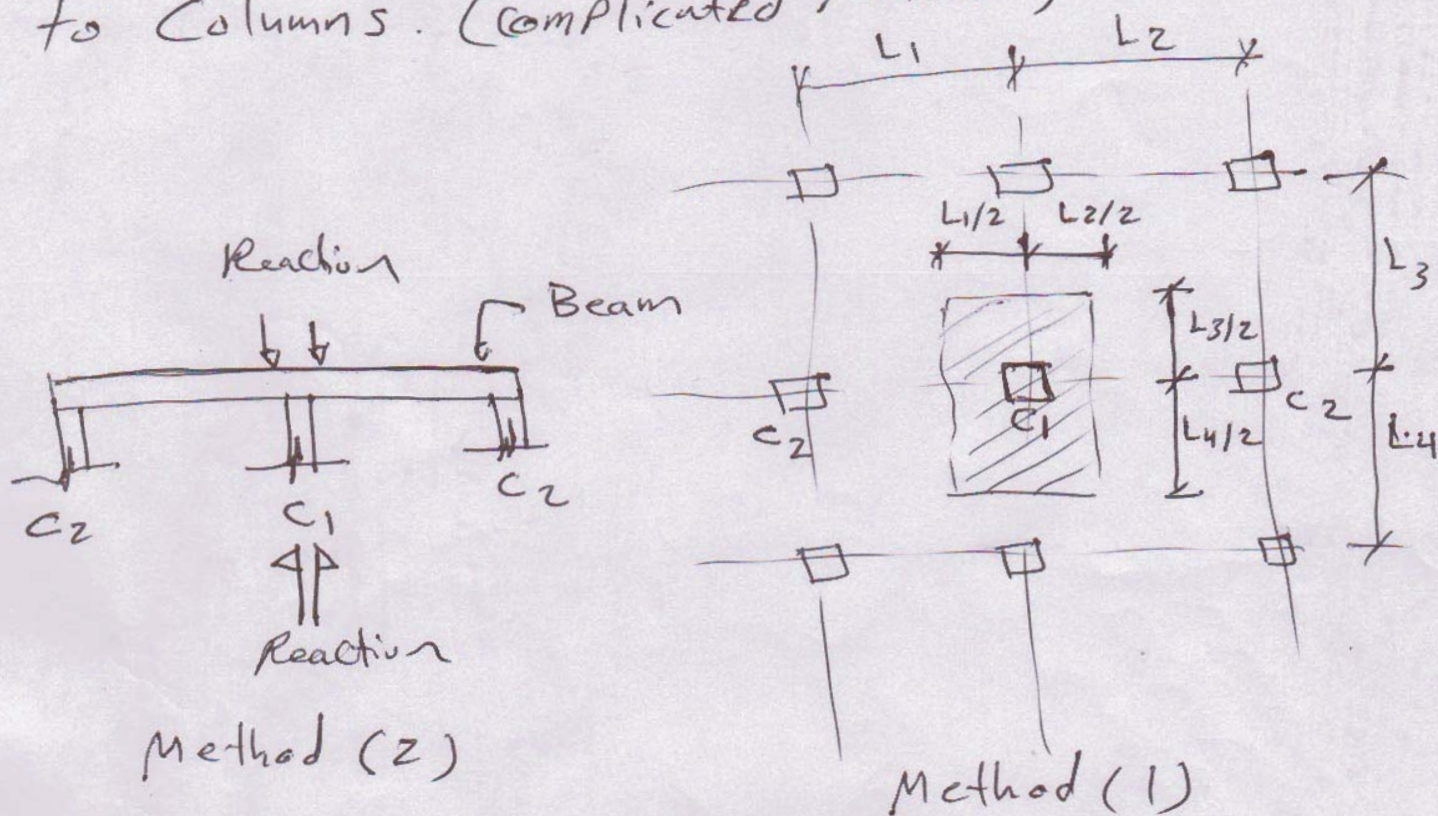 to Columns. (complicated
L1
L2
L1/2
L2/2
L3
L3/2
L4/2
L4
C1
C2
C2
Method (1)
Reaction
Beam
C2
C1
C2
Reaction
Method (2)